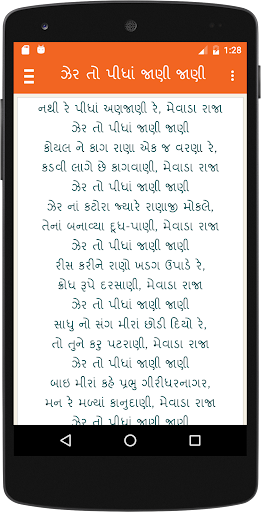 1:28
ઝેર તો પીધાં જાણી જાણી
નથી રે પીધાં અણજાણી રે, મેવાડા રાજા
ઝેર તો પીધાં જાણી જાણી
કોયલ ને કાગ રાણા એક જ વરણા રે,
કડવી લાગે છે કાગવાણી, મેવાડા રાજા
ઝેર તો પીધાં જાણી જાણી
ઝેર નાં કટોરા જ્યારે રાણાજી મોકલે,
તેનાં બનાવ્યા દૂધ-પાણી, મેવાડા રાજા
ઝેર તો પીધાં જાણી જાણી
રીસ કરીને રાણો ખડગ ઉપાડે રે,
ક્રોધ રૂપે દરસાણી, મેવાડા રાજા
ઝેર તો પીધાં જાણી જાણી
સાધુ નો સંગ મીરાં છોડી દિયો રે,
તો તુને કરુ પટરાણી, મેવાડા રાજા
ઝેર તો પીધાં જાણી જાણી
બાઇ મીરાં કહે પ્રભુ ગીરીધરનાગર,
મન રે મળ્યાં કાનુદાણી, મેવાડા રાજા
ઝેર તો પીધાં જાણી જાણી